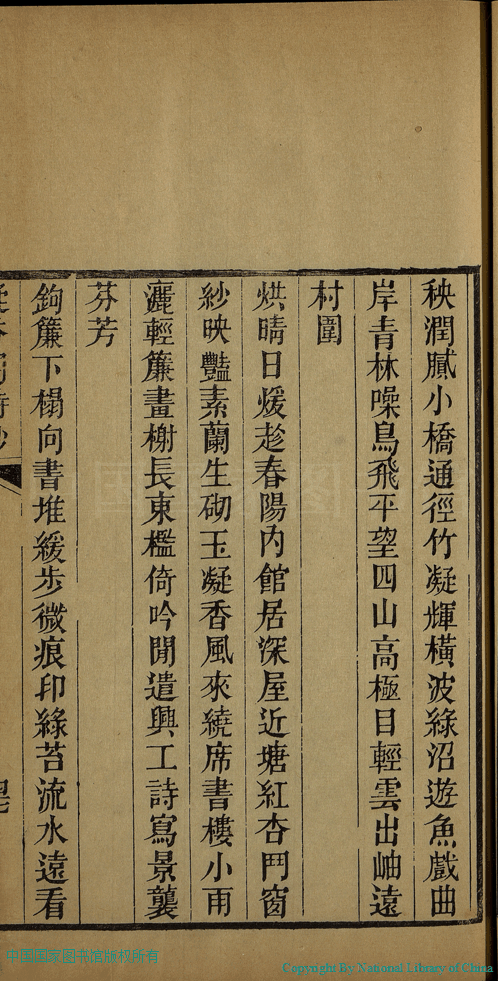 秧潤膩小橋通徑竹凝輝橫波綠沼遊魚戲曲
岸青林噪鳥飛平望四山高極目輕雲出岫遠
村圍
烘晴日煖趁春陽內館居深屋近塘紅杏鬥窗
紗映豔素蘭生砌玉凝香風來繞席書樓小雨
灑輕簾畫榭長東檻倚吟閒遣興工詩寫景襲
芬芳
鉤簾下榻向書堆緩步微痕印綠苔流水遠看
中国国家图书馆版权所有
Copyright By National Library of China